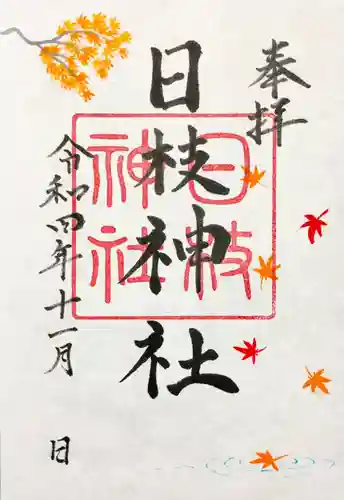 奉拝
日枝神社
日枝
神社
令和四年十一月 日